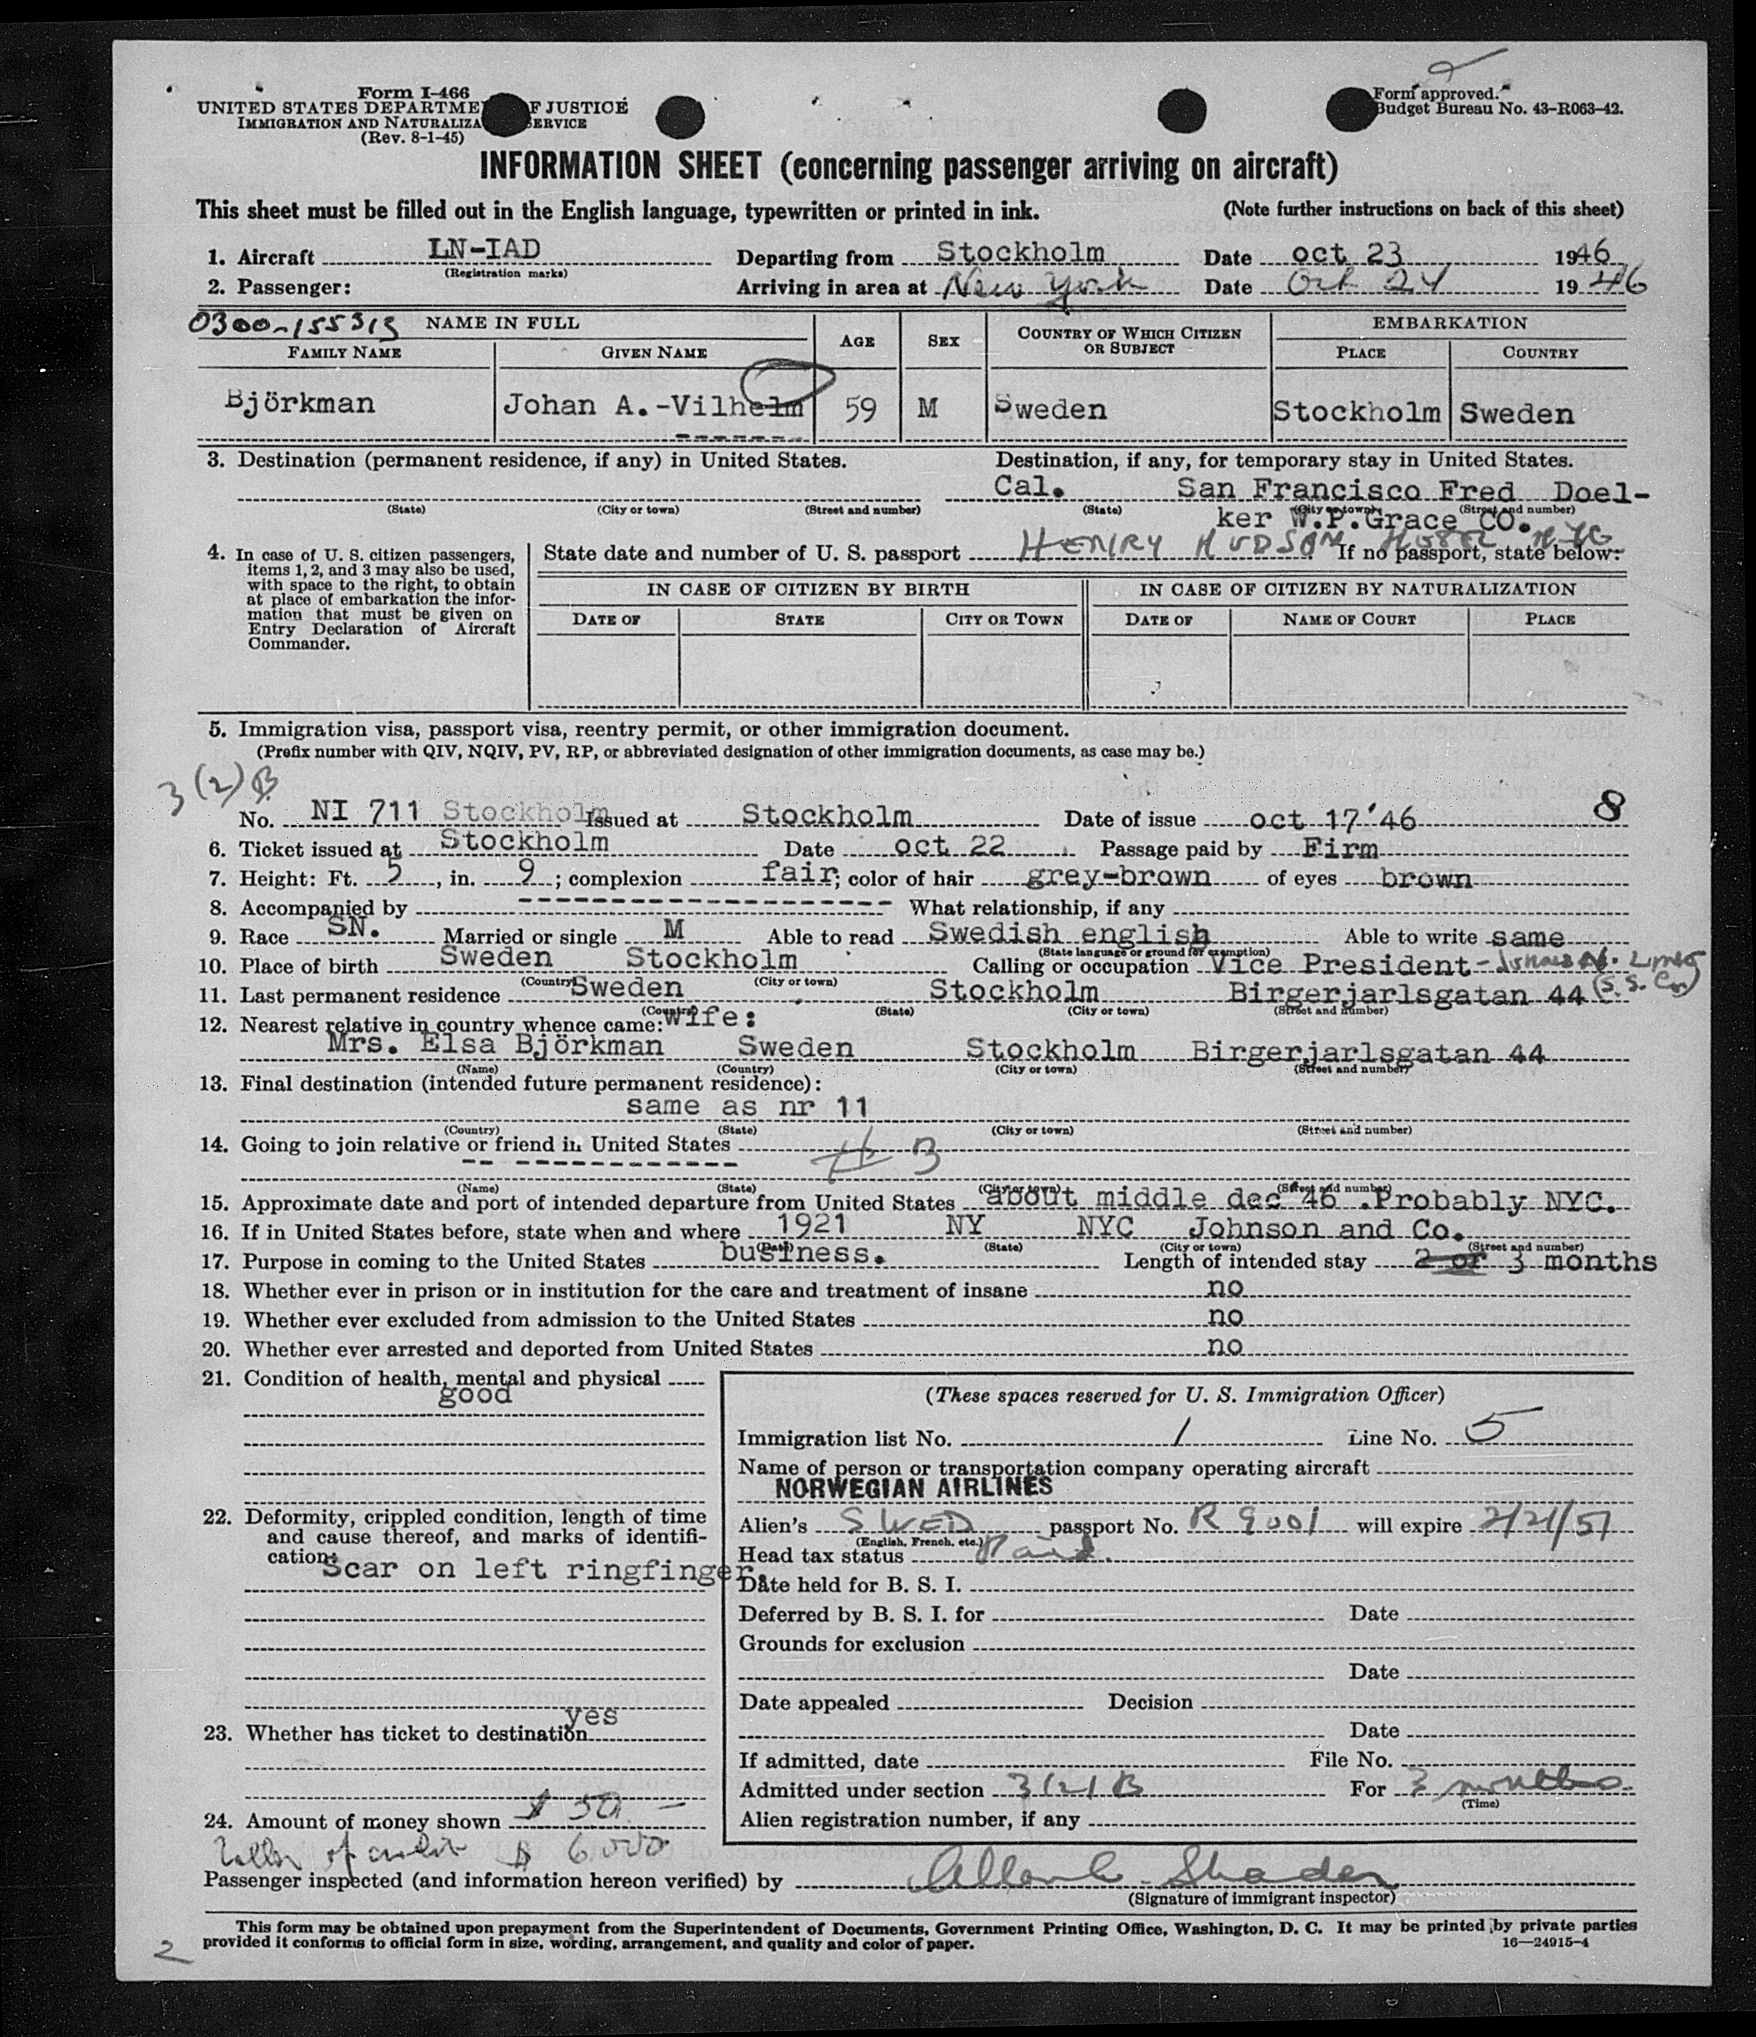 Form I-466
UNITED STATES DEPARTMENT OF JUSTICE
IMMIGRATION AND NATURALIZATION SERVICE
(Rev. 8-1-45)
Form approved.
Budget Bureau No. 43-R063-42.
INFORMATION SHEET (concerning passenger arriving on aircraft)
This sheet must be filled out in the English language, typewritten or printed in ink. (Note further instructions on back of this sheet)
1. Aircraft LN-IAD Departing from Stockholm Date oct 23 1946
(Registration marks)
2. Passenger: Arriving in area at New York Date Oct 24 1946
0300-155315 NAME IN FULL AGE SEX COUNTRY OF WHICH CITIZEN OR SUBJECT EMBARKATION
FAMILY NAME GIVEN NAME PLACE COUNTRY
Björkman Johan A.-Vilhelm 59 M Sweden Stockholm Sweden
3. Destination (permanent residence, if any) in United States. Destination, if any, for temporary stay in United States.
Cal. San Francisco Fred Doel-
(State) (City or town) (Street and number) (State) (City or town) (Street and number)
ker W.P.Grace CO.
4. In case of U. S. citizen passengers, items 1, 2, and 3 may also be used, with space to the right, to obtain at place of embarkation the information that must be given on Entry Declaration of Aircraft Commander.
State date and number of U. S. passport HENRY HUDSON HOTEL NYC If no passport, state below:
IN CASE OF CITIZEN BY BIRTH IN CASE OF CITIZEN BY NATURALIZATION
DATE OF STATE CITY OR TOWN DATE OF NAME OF COURT PLACE
5. Immigration visa, passport visa, reentry permit, or other immigration document.
(Prefix number with QIV, NQIV, PV, RP, or abbreviated designation of other immigration documents, as case may be.)
3(2)B
No. NI 711 Stockholm Issued at Stockholm Date of issue oct 17'46 8
6. Ticket issued at Stockholm Date oct 22 Passage paid by Firm
7. Height: Ft. 5, in. 9; complexion fair; color of hair grey-brown of eyes brown
8. Accompanied by What relationship, if any
9. Race SN. Married or single M Able to read Swedish english Able to write same
(State language or ground for exemption)
10. Place of birth Sweden Stockholm Calling or occupation Vice President-
(Country) (City or town)
(S.S. Co)
11. Last permanent residence Sweden Stockholm Birgerjarlsgatan 44
(Country) (State) (City or town) (Street and number)
12. Nearest relative in country whence came: wife:
Mrs. Elsa Björkman Sweden Stockholm Birgerjarlsgatan 44
(Name) (Country) (City or town) (Street and number)
13. Final destination (intended future permanent residence):
same as nr 11
(Country) (State) (City or town) (Street and number)
14. Going to join relative or friend in United States
# B
(Name) (State) (City or town) (Street and number)
15. Approximate date and port of intended departure from United States about middle dec 46 .Probably NYC.
16. If in United States before, state when and where 1921 NY NYC Johnson and Co.
(Date) (State) (City or town) (Street and number)
17. Purpose in coming to the United States business. Length of intended stay 2 or 3 months
18. Whether ever in prison or in institution for the care and treatment of insane no
19. Whether ever excluded from admission to the United States no
20. Whether ever arrested and deported from United States no
21. Condition of health, mental and physical
good
22. Deformity, crippled condition, length of time and cause thereof, and marks of identification:
Scar on left ringfinger.
23. Whether has ticket to destination yes
24. Amount of money shown $ 50 —
letter of credit $ 6000
(These spaces reserved for U. S. Immigration Officer)
Immigration list No. 1 Line No. 5
Name of person or transportation company operating aircraft
NORWEGIAN AIRLINES
Alien's SWED passport No. R 9001 will expire 2/21/51
(English, French, etc.)
Head tax status Paid.
Date held for B. S. I.
Deferred by B. S. I. for Date
Grounds for exclusion
Date
Date appealed Decision
Date
If admitted, date File No.
Admitted under section 3(2)B For 3 months
(Time)
Alien registration number, if any
Passenger inspected (and information hereon verified) by
(Signature of immigrant inspector)
This form may be obtained upon prepayment from the Superintendent of Documents, Government Printing Office, Washington, D. C. It may be printed by private parties
provided it conforms to official form in size, wording, arrangement, and quality and color of paper. 16—24915-4
2